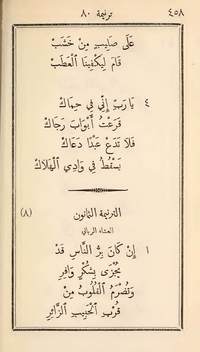 ٤٥٨ ترنيمة ٨٠
عَلَى صَلِيبٍ مِنْ خَشَبْ
قَامَ لِيَكْفِينَا ٱلْعَطَبْ
٤ يَا رَبِّ إِنِّي فِي حِمَاكْ
قَرَعْتُ أَبْوَابَ رَجَاكْ
فَلَا تَدَعْ عَبْدًا دَعَاكْ
يَسْقُطُ فِي وَادِي ٱلْهَلَاكْ
الترنيمة الثمانون (٨)
العشاء الرباني
١ إِنْ كَانَ بِرُّ ٱلنَّاسِ قَدْ
يُجْزَى بِشُكْرٍ وَافِرِ
وَتُضْرَمُ ٱلْقُلُوبُ مِنْ
قُرْبِ ٱلْحَبِيبِ ٱلزَّائِرِ